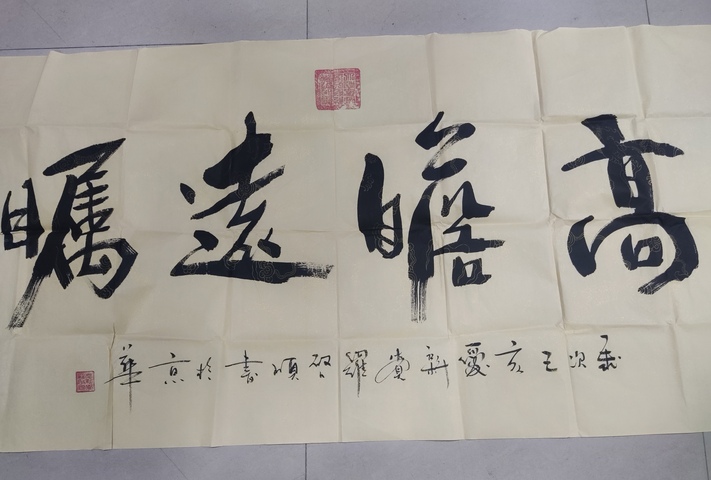 高瞻遠矚
歲次亥愛新覺羅啟頌書於京華